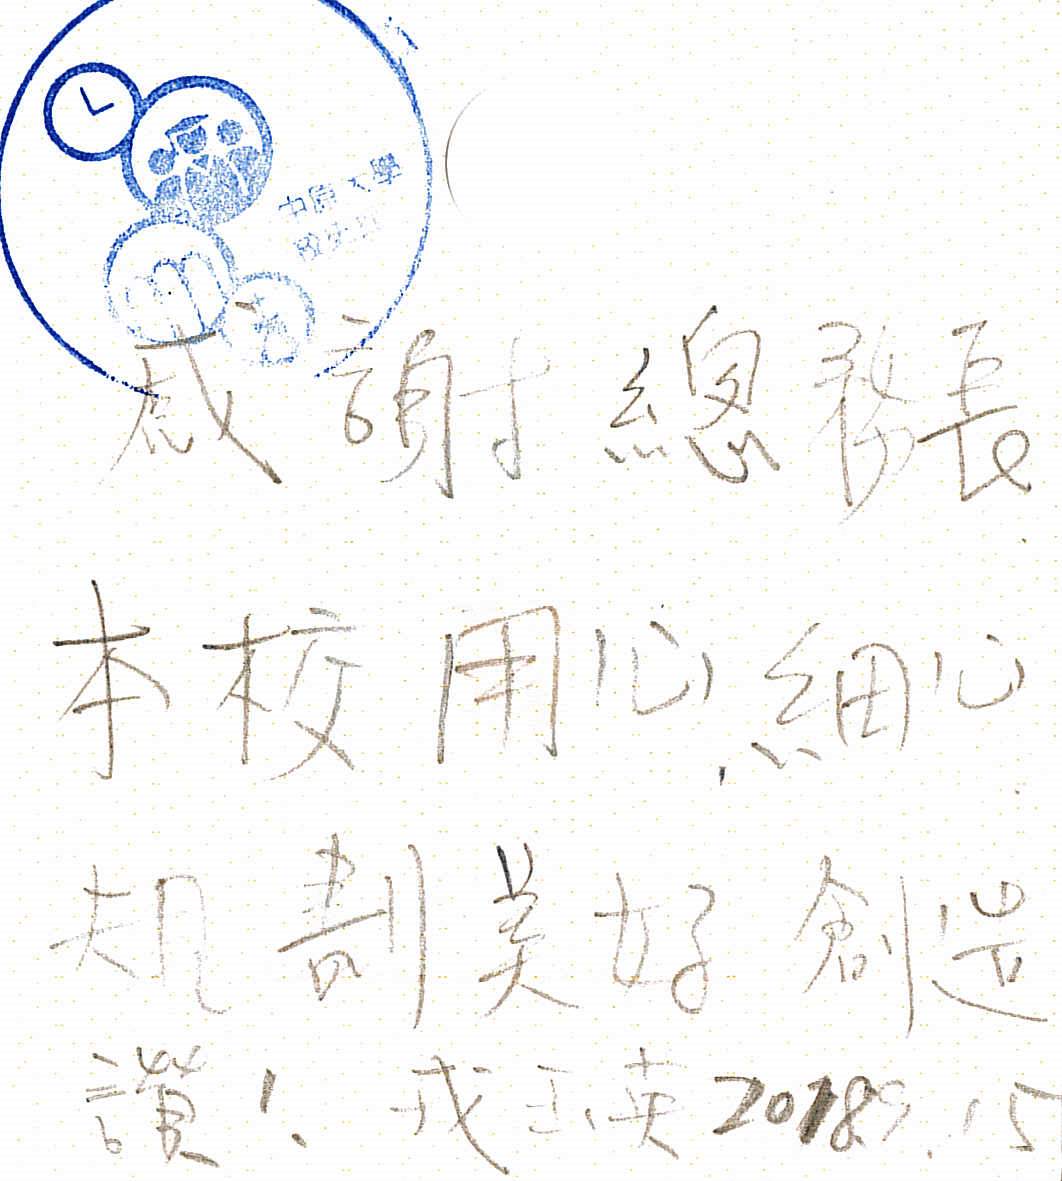 中原大學
校史館
感謝總務長
本校用心,細心
規劃美好創造
讚! 戎玉英 2018.9.15